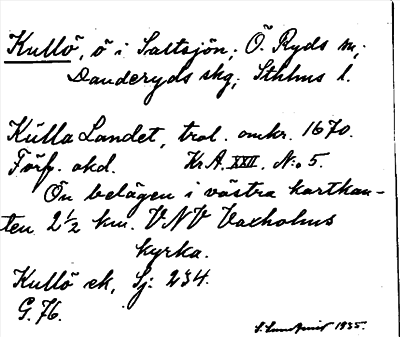 Kullö, ö i Saltsjön; Ö. Ryds sn;
Danderyds skg; Sthlms l.
Kulla Landet, trol. omkr. 1670.
Förf. okd. Kr.A. XXII. No. 5.
Ön belägen i västra kartkan-
ten 2½ km. VNV Vaxholms
kyrka.
Kullö ek, Sj: 234.
G. 76.
S. Lundqvist 1935.